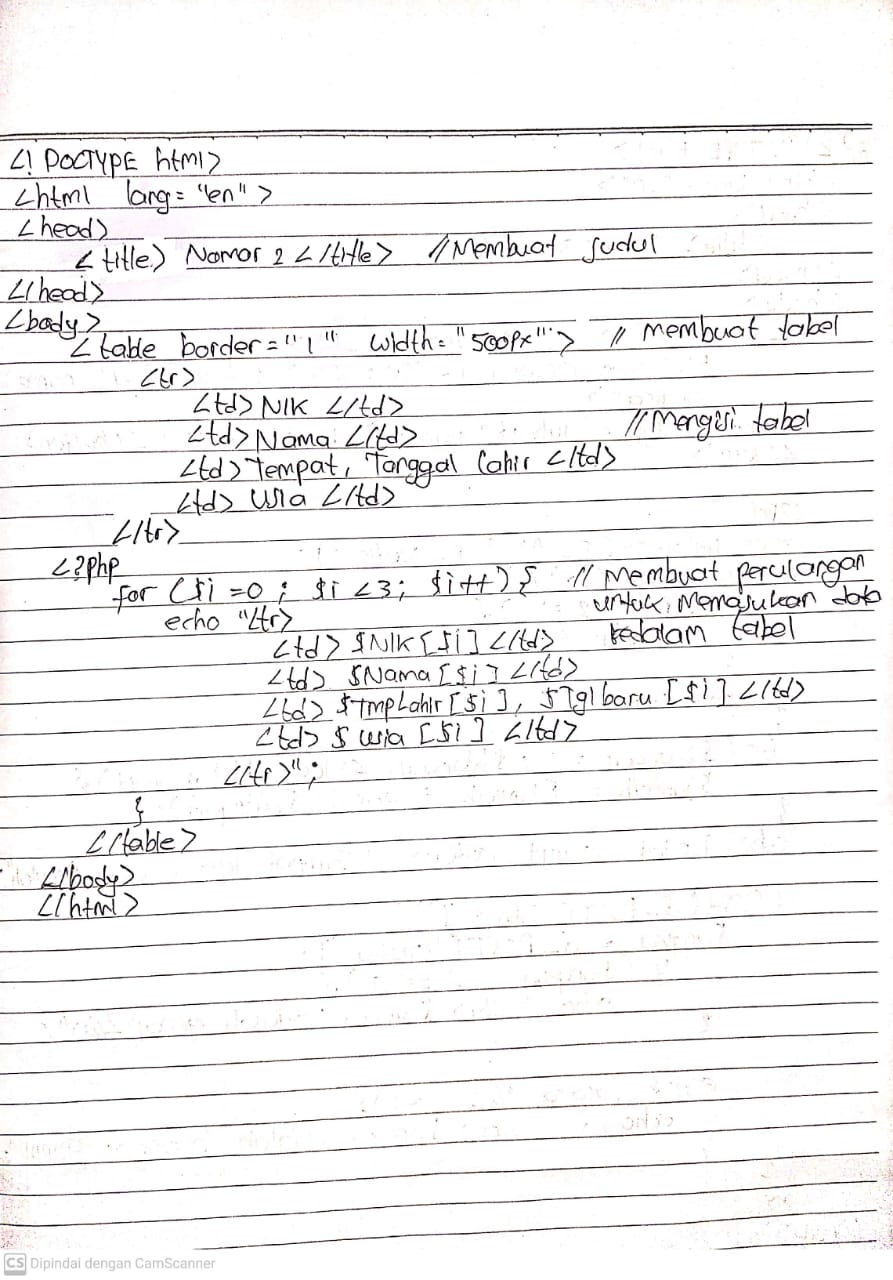 <! DOCTYPE html>
<html lang = "en" >
<head>
<title> Nomor 2 </title> // Membuat Judul
</head>
<body>
<table border = "1" width = "500px" > // membuat tabel
<tr>
<td> NIK </td>
<td> Nama </td> // Mengisi tabel
<td> Tempat, Tanggal Lahir </td>
<td> Usia </td>
</tr>
<?php
for ($i =0 ; $i <3; $i++) { // Membuat perulangan
echo "<tr> untuk memasukan data
<td> $NIK [$i] </td> kedalam tabel
<td> $Nama [$i] </td>
<td> $TmpLahir [$i], $Tglbaru [$i] </td>
<td> $ usia [$i] </td>
</tr>";
}
</table>
</body>
</html>
CS Dipindai dengan CamScanner